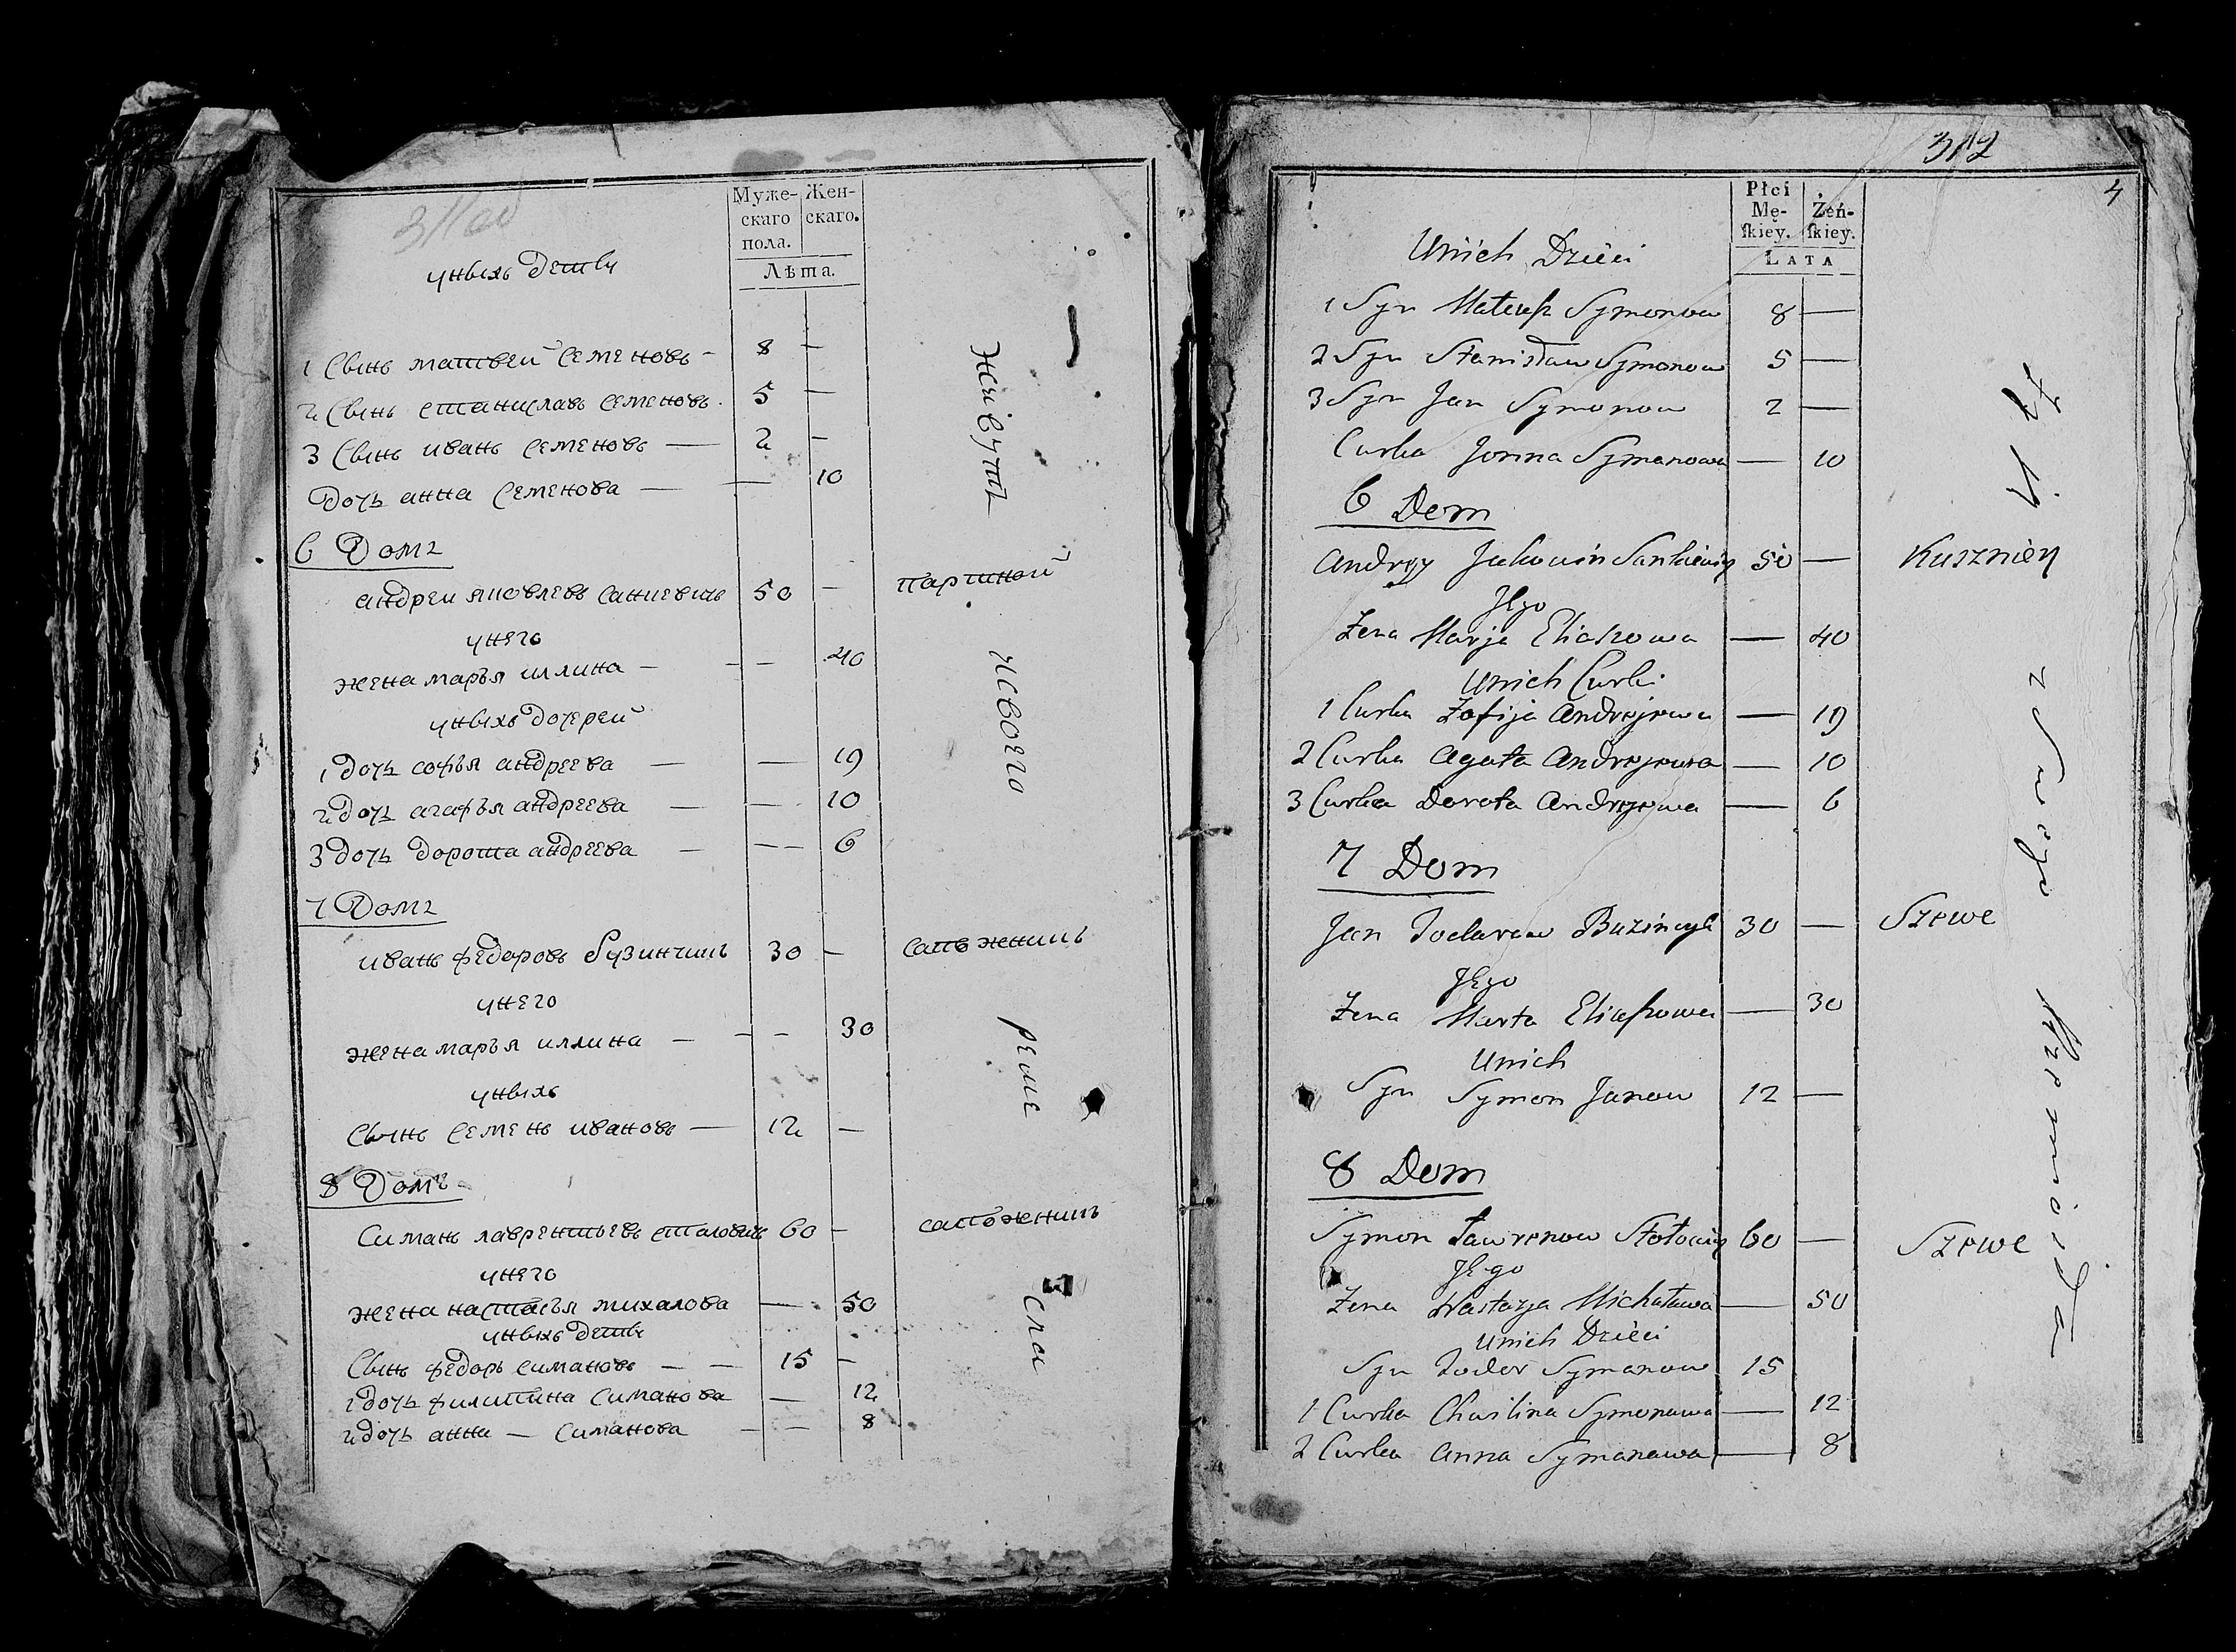 Муже-
скаго
пола.
Жен-
скаго.
Лѣта.
унихъ дети
1 Сынъ матвей Семеновъ — 8 —
2 Сынъ станиславъ Семеновъ. 5 —
3 Сынъ иванъ Семеновъ — 2 —
дочь анна Семенова — — 10
6 Домъ
андреи яковлевъ санкевичь 50 — портной
унего
жена марья илина — — 40
унихъ дочерей
1 дочь софья андреева — — 19
2 дочь агафья андреева — — 10
3 дочь дорота андреева — — 6
7 Домъ
иванъ федоровъ бузинчикъ 30 — сапожникъ
унего
жена марья илина — — 30
унихъ
Сынъ Семенъ ивановъ — 12 —
8 Домъ
Симанъ лаврентьевъ столовичь 60 — сапожникъ
унего
жена настасья михалова — 50
унихъ дети
Сынъ федоръ симановъ — — 15 —
1 дочь Симанова — 12
2 дочь анна — Симанова — — 8
живутъ
исвоего
реме
сла
312
4
Płci
Mę-
ſkiey.
Żeń-
ſkiey.
LATA
Unich Dzieci
1 Syn Mateusz Symonow 8 —
2 Syn Stanisław Symonow 5 —
3 Syn Jan Symonow 2 —
Curka Symonowa — 10
6 Dom
Andrzy Jakowin Sankiewicz 50 — Kusznierz
Jego
Zena Marja Eliaszowa — 40
Unich Curki
1 Curka Zofija Andrzejowa — 19
2 Curka Agata Andrzejowa — 10
3 Curka Dorota Andrzejowa — 6
7 Dom
Jan Todorow Buzińczyk 30 — Szewc
Jego
Zena Marta Eliaszowa — 30
Unich
Syn Symon Janow 12 —
8 Dom
Symon Ławrenow Stołowicz 60 — Szewc
Jego
Zena Nastazja Michałowa — 50
Unich Dzieci
Syn Todor Symonow 15
1 Curka Symonowa — 12
2 Curka Anna Symonowa — 8